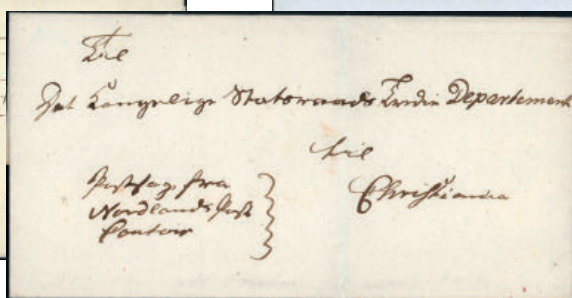 Til
Det Kongelige Statsraads Tredie Departement
til
Christiania
Postsag fra
Nordlands Post
Contoir